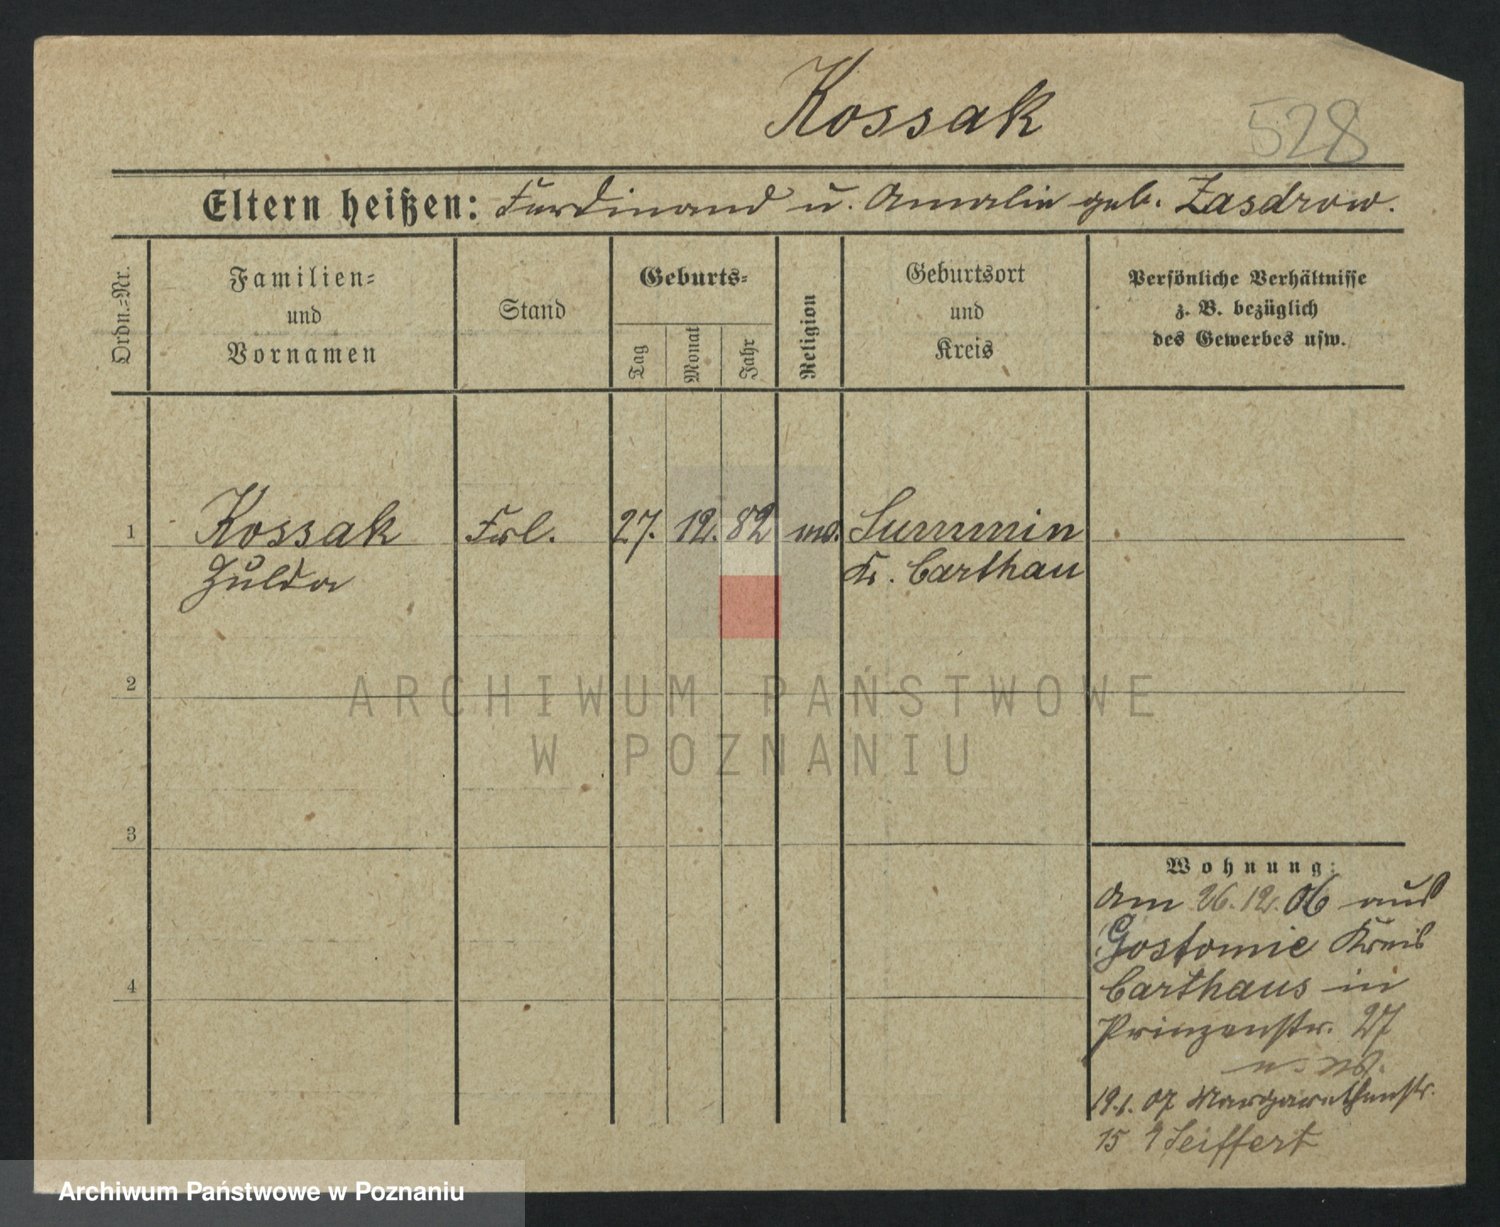 Kossak
528
Eltern heißen: Ferdinand u. Amalie geb. Zasdrow.
Ordn.-Nr.
Familien-
und
Vornamen
Stand
Geburts-
Tag
Monat
Jahr
Religion
Geburtsort
und
Kreis
Persönliche Verhältnisse
z. B. bezüglich
des Gewerbes usw.
1 Kossak Frl. 27. 12. 82 Summin
Hulda Kr. Carthau
2
3
4
ARCHIWUM PAŃSTWOWE
W POZNANIU
Wohnung:
Am 26.12.06 aus
Gostomie Kreis
Carthaus in
Prinzenstr. 27
19.1.07 Margarethenstr.
15 Seiffert
Archiwum Państwowe w Poznaniu